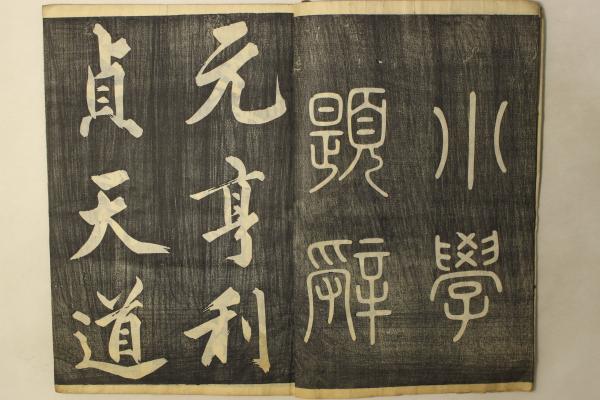 小學
題辭
元亨利
貞天道